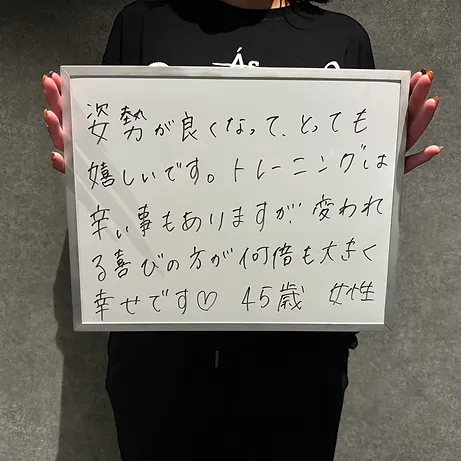 姿勢が良くなって、とっても
嬉しいです。トレーニングは
辛い事もありますが、変われ
る喜びの方が何倍も大きく
幸せです♡ 45歳 女性